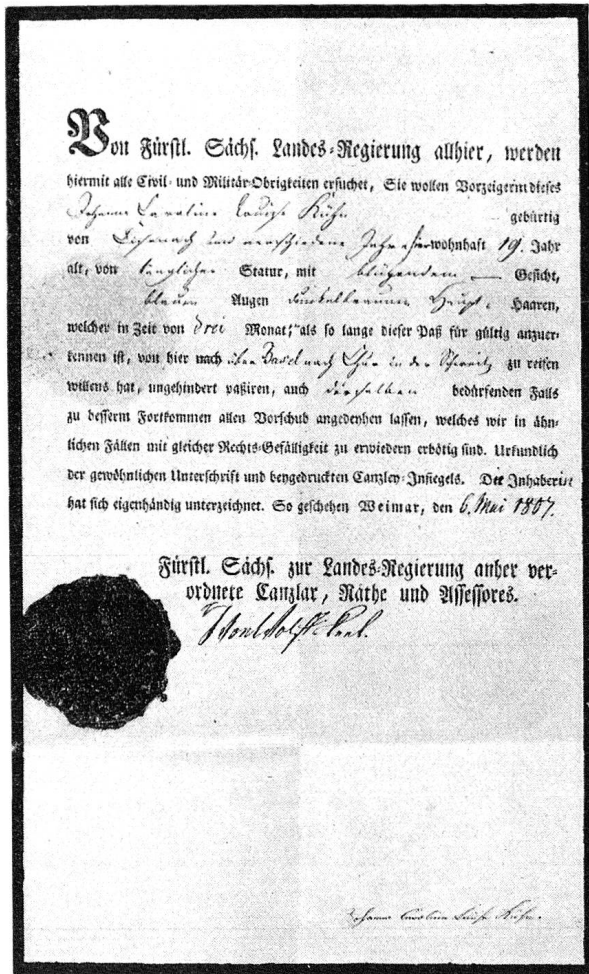 Von Fürstl. Sächs. Landes-Regierung allhier, werden
hiermit alle Civil- und Militär-Obrigkeiten ersuchet, Sie wollen Vorzeigerin dieses
Johanna Caroline Louise Kühn gebürtig
von Eisenach und verschiedene Jahre hier wohnhaft 19. Jahr
alt, von länglicher Statur, mit blühendem — Gesicht,
blauen Augen dunkelbraunen Haupt- Haaren,
welcher in Zeit von drei Monat, als so lange dieser Paß für gültig anzuer-
kennen ist, von hier nach über Basel nach Chur in der Schweitz zu reisen
willens hat, ungehindert paßiren, auch derselben bedürfenden Falls
zu besserm Fortkommen allen Vorschub angedeyhen lassen, welches wir in ähn-
lichen Fällen mit gleicher Rechts-Gefälligkeit zu erwiedern erbötig sind. Urkundlich
der gewöhnlichen Unterschrift und beygedruckten Canzley-Insiegels. Die Inhaberin
hat sich eigenhändig unterzeichnet. So geschehen Weimar, den 6. Mai 1807.
Fürstl. Sächs. zur Landes-Regierung anher ver-
ordnete Canzlar, Räthe und Assessores.
Johanna Caroline Louise Kühn.